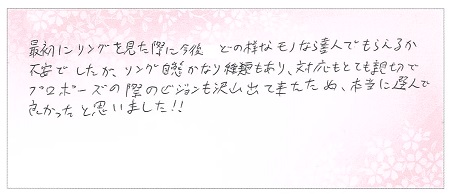 最初にリングを見た際に今後 どの様なモノなら喜んでもらえるか
不安でしたが、リング自態かなり種類もあり、対応もとても親切で
プロポーズの際のビジョンも沢山出て来たため、本当に選んで
良かったと思いました!!